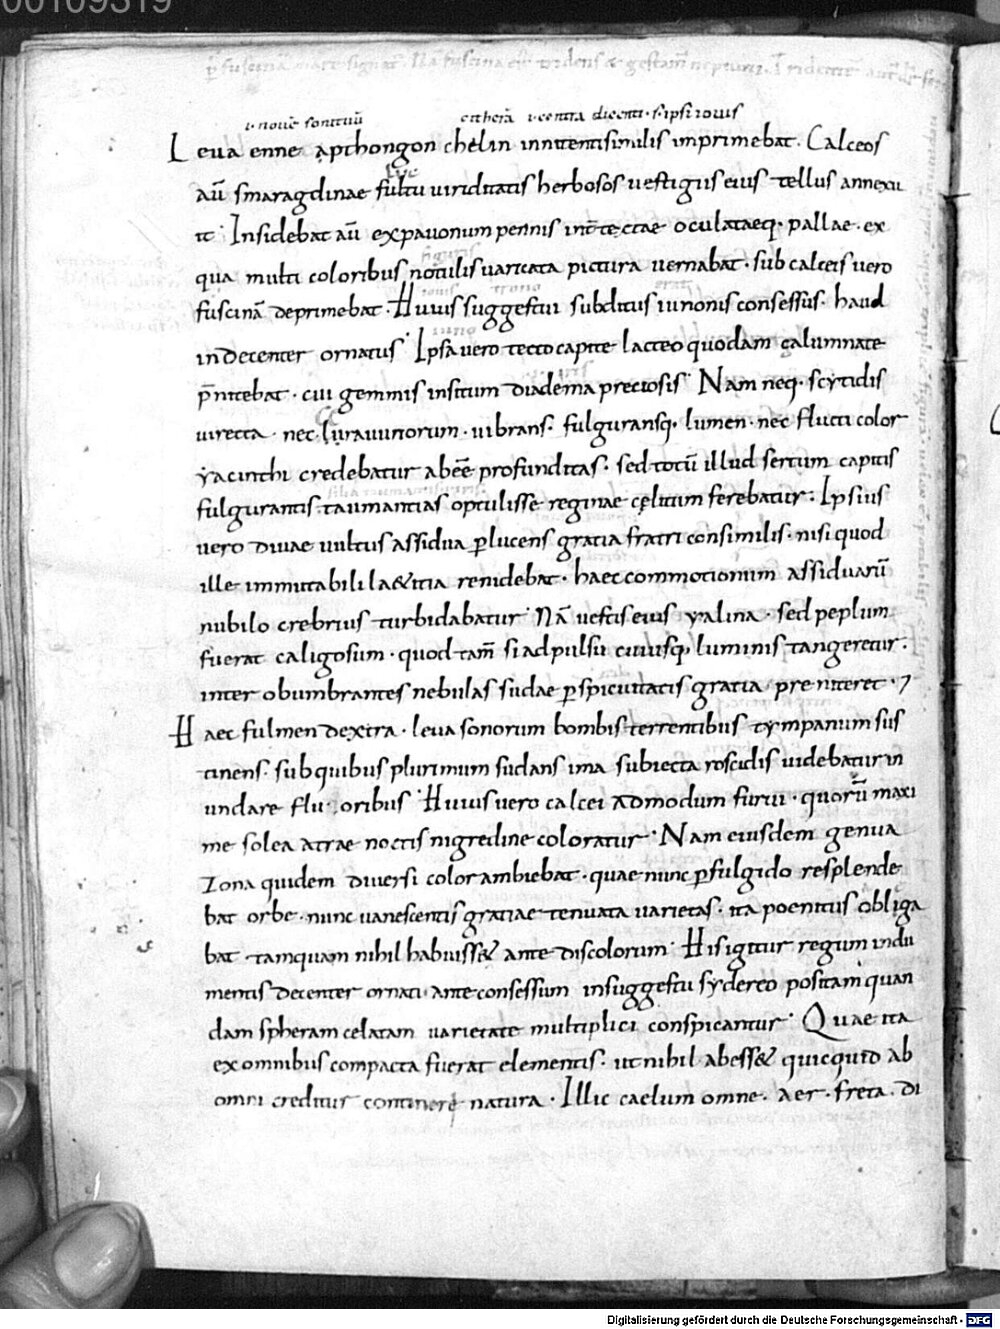 00109319
.i. nouē sonituū citherā .i. contra dicenti .s. ipsi iouis
Leua enne apthongon chelin innitenti similis imprimebat. Calceos
aū smaragdinae fultu uiriditatis herbosos uestigiis eius tellus annexu
it. Insidebat aū expauonum pennis intectae oculataeq. pallae. ex
qua multi coloribus notulis uaricata pictura uernabat. sub calceis uero
fuscinā deprimebat. Huius suggestui subditus iunonis consessus. haud
indecenter ornatus. Ipsa uero tecto capite lacteo quodam calumnate
p̄nitebat. cui gemmis insitum diadema preciosis. Nam neq. scytidis
uirecta. nec ceraunorum. uibrans. fulguransq. lumen. nec flucti color
yacinthi credebatur abeē profunditas. sed totū illud sertum capitis
fulgurantis. taumantias optulisse reginae celitum ferebatur. Ipsius
uero diuae uultus assidua plucens gratia fratri consimilis. nisi quod
ille immutabili laetitia renidebat. haec commotionum assiduarū
nubilo crebrius turbidabatur. Nā uestis eius yalina. sed peplum
fuerat caligosum. quod tam̄ si adpulsu cuiusq. luminis tangeretur.
inter obumbrantes nebulas sudae pspicuitatis gratia preniteret. 7
Haec fulmen dextra. leua sonorum bombis terrentibus tympanum sus
tinens. sub quibus plurimum sudans ima subiecta roscidis uidebatur in
undare fluoribus. Huius uero calcei admodum furui. quorū maxi
me solea atrae noctis nigredine coloratur. Nam eiusdem genua
zona quidem diuersi color ambiebat. quae nunc pfulgido resplende
bat orbe. nunc uanescentis gratiae tenuata uarietas. ita poenitus obliga
bat tamquam nihil habuisset ante discolorum. His igitur regum indu
mentis decenter ornati. ante consessum in suggestu sydereo positam quan
dam spheram celatam uarietate multiplici conspicantur. Quae ita
ex omnibus compacta fuerat elementis. ut nihil abesset quicquid ab
omni creditur contineri natura. Illic caelum omne. aer. freta. di
Digitalisierung gefördert durch die Deutsche Forschungsgemeinschaft - DFG